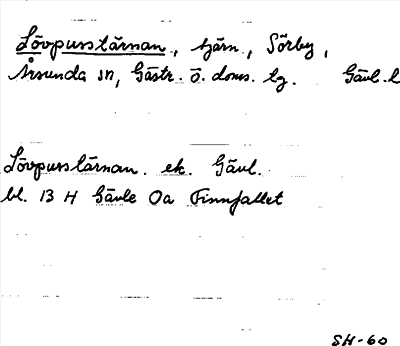 Lövpusstärnan, tjärn, Sörby,
Årsunda sn, Gästr. ö. doms. lg. Gävl. l
Lövpusstärnan. ek. Gävl.
bl. 13 H Gävle 0a Finnfallet
SH-60